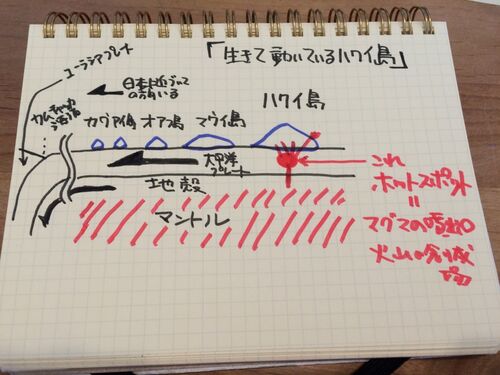 「生きて動いているハワイ島」
ユーラシアプレート
日本に近づいて
カムチャッカ
ハワイ島
カウアイ島 オアフ島 マウイ島
太平洋
プレート
地殻
マントル
これ
ホットスポット
＝
マグマの噴出口
火山の創成